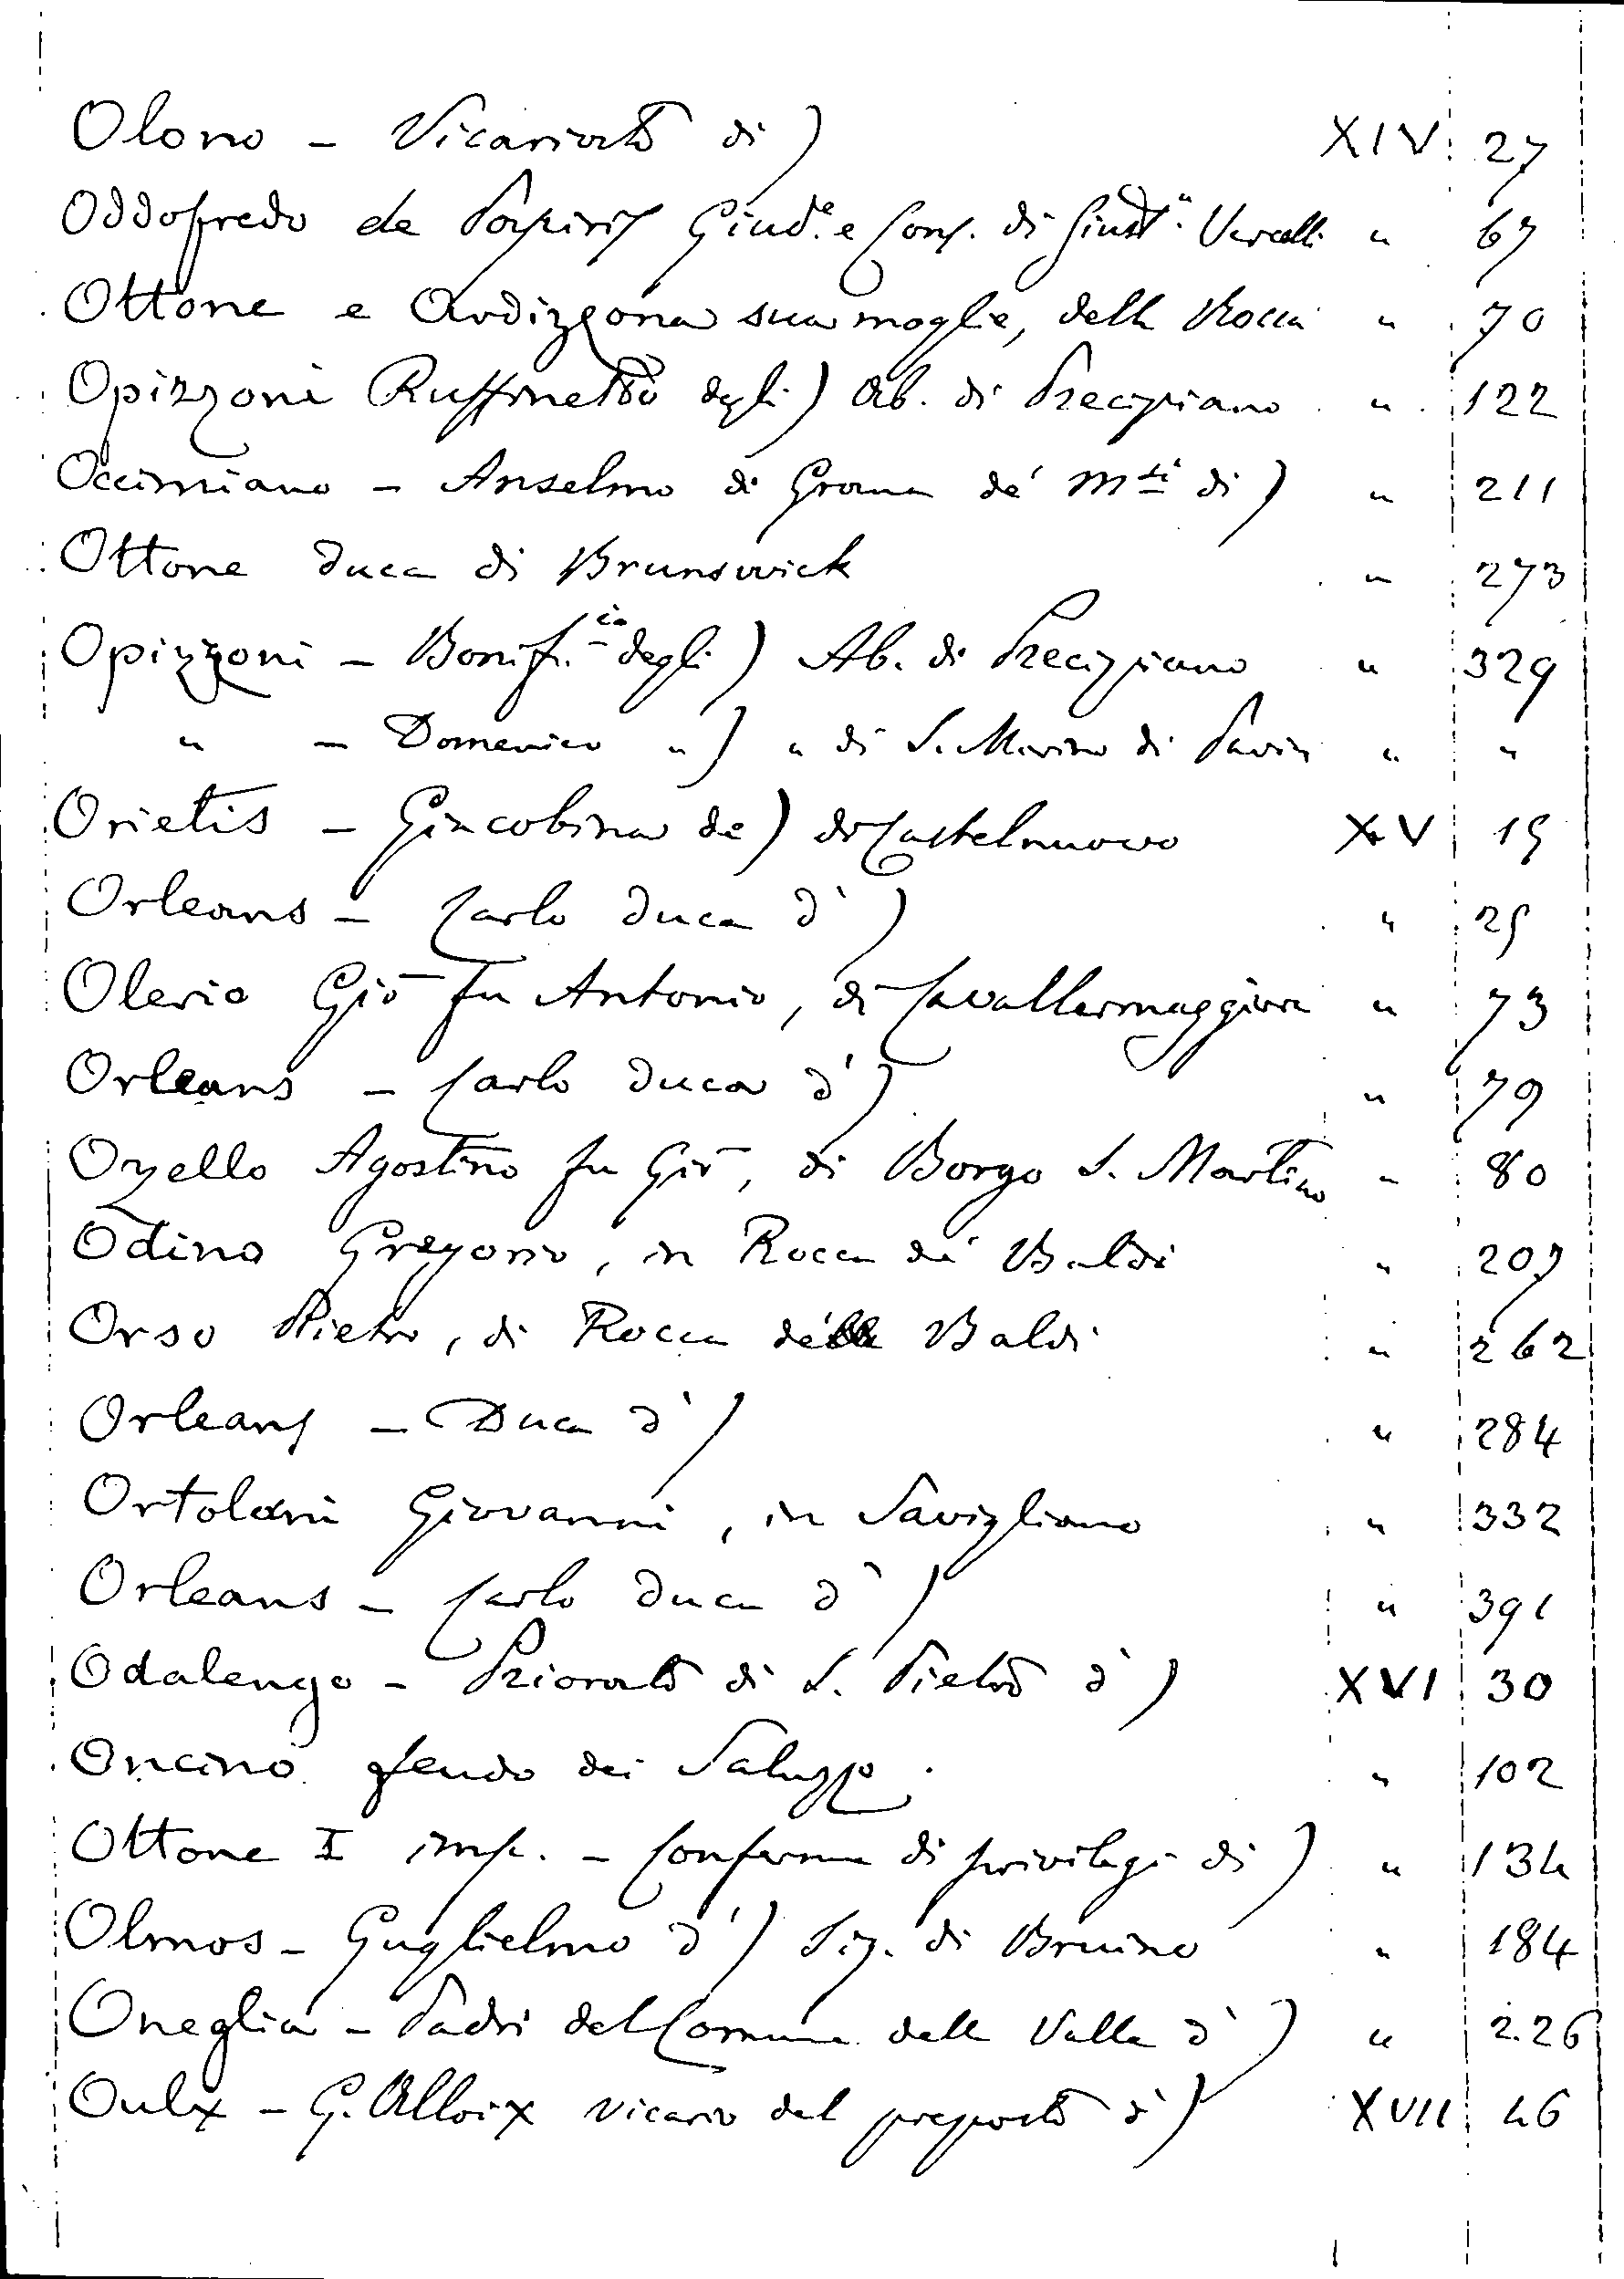 Olono - Vicariato di) XIV 27
Oddofredo de Giud.e e Cons. di Giust.a Vercelli " 67
Ottone e Ardizzona sua moglie, della Rocca " 70
Opizzoni Ruffinetto degli) Ab. di Precipiano " 122
Occimiano - Anselmo di de' Mti di) " 211
Ottone Duca di Brunswick " 273
Opizzoni - Bonif.cio degli) Ab. di Precipiano " 329
" - Domenico ") " di S. Marino di Pavia " "
Orietis - Giacobina de) di Castelnuovo XV 15
Orleans - Carlo Duca d') " 25
Olerio Giō fu Antonio, di Cavallermaggiore " 73
Orleans - Carlo Duca d') " 79
Ozello Agostino fu Giō, di Borgo S. Martino " 80
Odino Gregorio, in Rocca de' Baldi " 207
Orso Pietro, di Rocca de' Baldi " 262
Orleans - Duca d') " 284
Ortolani Giovanni, in Savigliano " 332
Orleans - Carlo Duca d') " 391
Odalengo - Priorato di S. Pietro d') XVI 30
Oncino feudo dei Saluzzo. " 102
Ottone I imp. - Conferma di privilegi di) " 134
Olmos - Guglielmo d') Sig. di Bruino " 184
Oneglia - Padri del Comune della Valle d') " 226
Oulx - G. Alloix vicario del preposto d') XVII 46